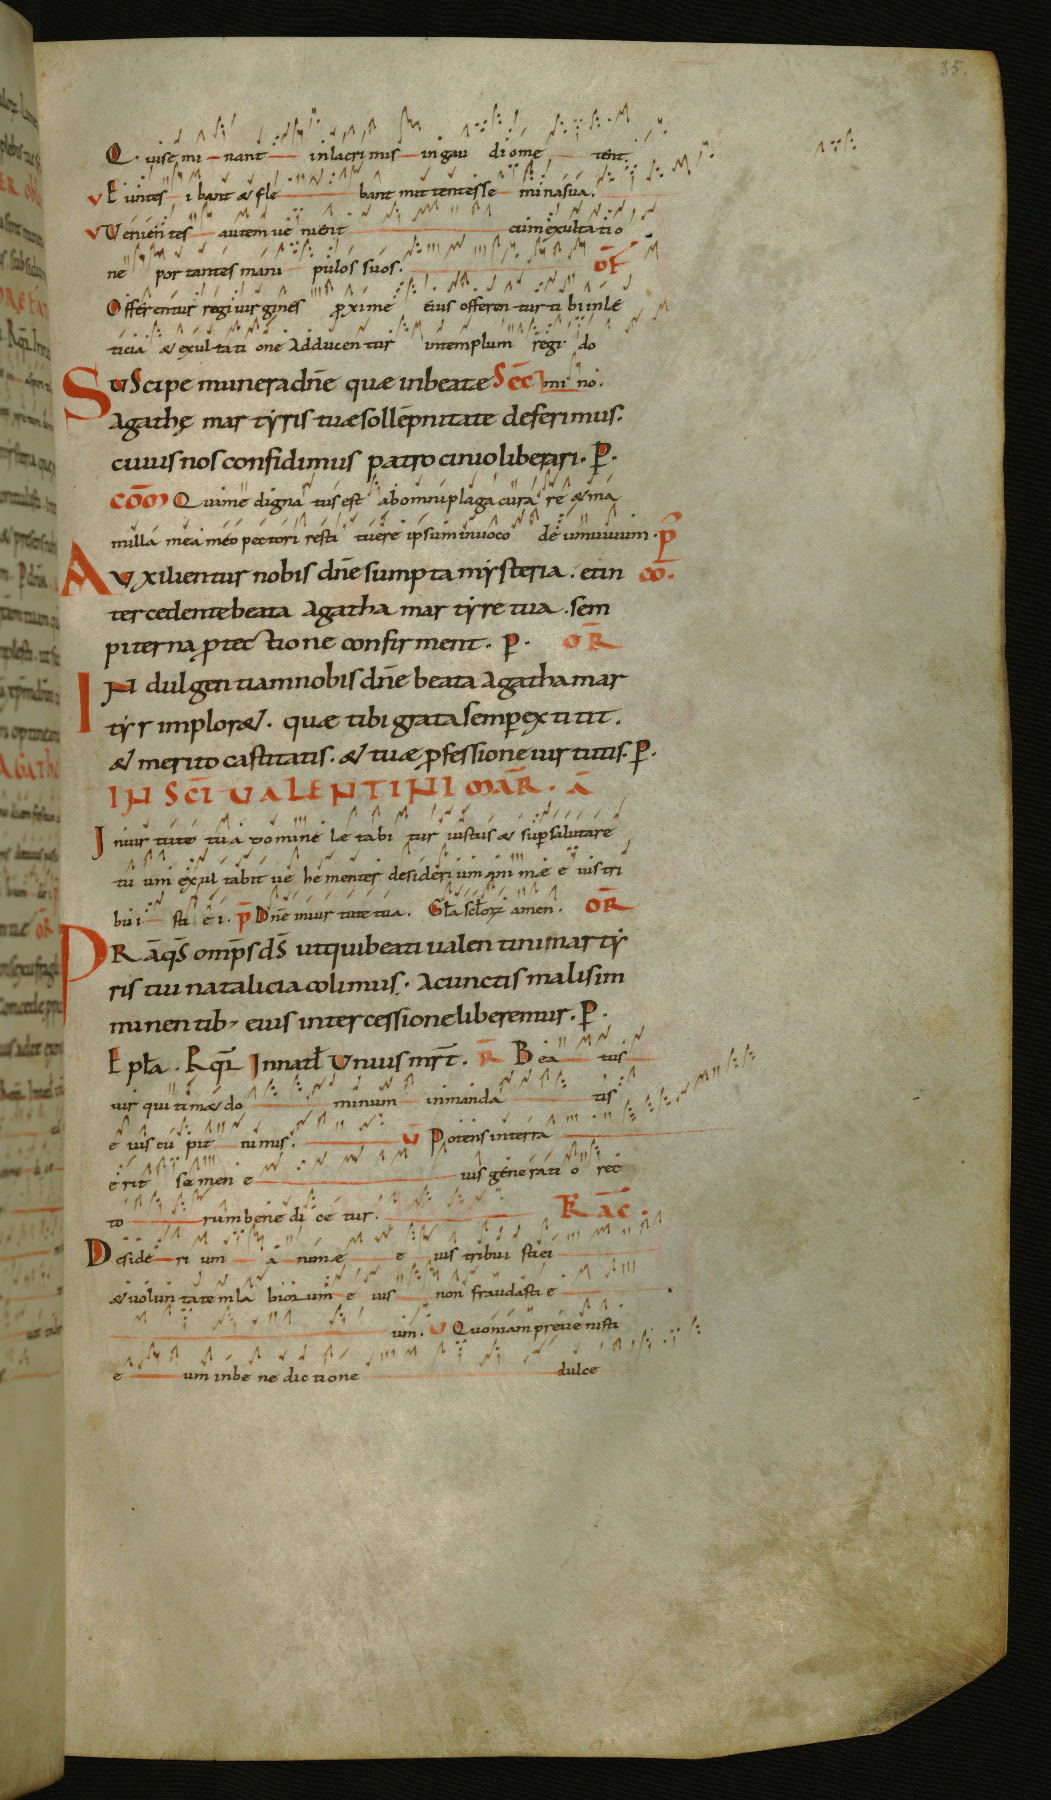 35.
Qui semi nant in lacrimis in gau dio me tent.
v Euntes i bant & fle bant mittentes se mina sua.
v Venientes autem ve nient cum exultatio
ne portantes mani pulos suos. OF
Offerentur regi virgines proxime eius offerentur tibi in lę
ticia & exultati one adducentur in templum regi do
SUScipe munera dn̄e quæ in beatæ SEC mi no.
Agathę martyris tuæ sollēpnitate deferimus.
cuius nos confidimus patrocinio liberari. P.
COM̄ Qui me digna tus est ab omni plaga cura re & ma
milla mea meo pectori resti tuere ipsum invoco de um vivum. P̄
AUxilientur nobis dn̄e sumpta mysteria. et in CO.
tercedente beata agatha martyre tua. sem
piterna ptectione confirment. P. OR̄
IN dulgentiam nobis dn̄e beata agatha mar
tyr implor&. quæ tibi grata semp extitit.
& merito castitatis. & tuæ pfessione virtutis. P.
IN SC̄I VALENTINI MAR̄. Ā
In virtute tua domine le tabi tur iustus & sup salutare
tu um exul tabit ve he menter desiderium animæ e ius tri
bu i sti e i. P̄ Dn̄e in virtute tua. Gl̄a sclor̄ amen. OR̄
PRā q̄s omps ds̄ ut qui beati valentini marty
ris tui natalicia colimus. a cunctis malis im
minentib; eius intercessione liberemur. P.
Epl̄a. Rqr̄ In nat̄l Unius mr̄t. R̄ Bea tus
vir qui tim& do minum in manda tis
e ius cu pit nimis. v Potens in terra
erit semen e ius generati o rec
to rum bene di ce tur. TRAC̄.
Desideri um a nimæ e ius tribui sti ei
& voluntatem la biorum e ius non fraudasti e
um. v Quoniam preve nisti
e um in be ne dictione dulce